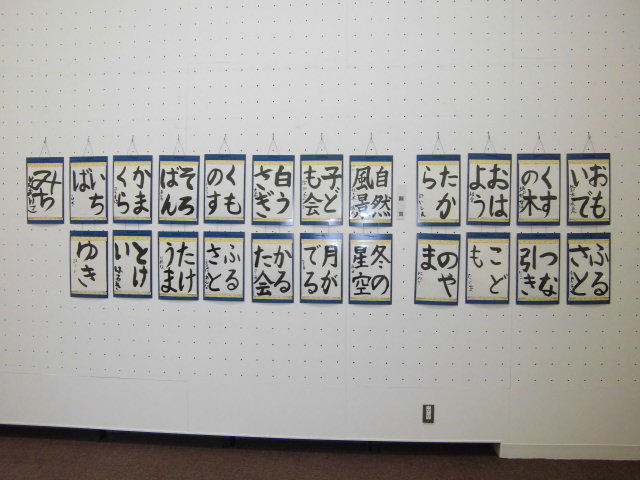 おも
いで
くす
の木
おは
よう
たか
ら
自然
風景
子ど
も会
白う
さぎ
くも
のす
そろ
ばん
かま
くら
いち
ば
ふる
さと
つな
引き
こど
も
のや
ま
冬の
星空
月が
でる
かる
た会
ふる
さと
たけ
うま
とけ
い
ゆき